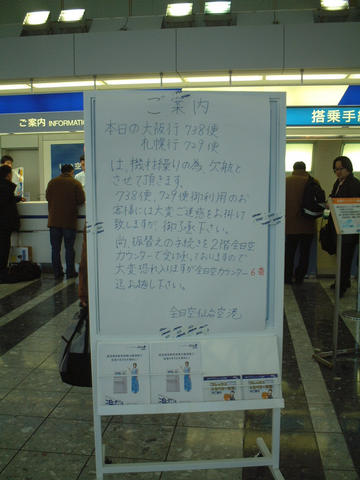 ご案内 INFORMATION
搭乗手続
ご案内
本日の大阪行 738便
札幌行 729便
は、機材繰りの為、欠航と
させて頂きます。
738便、729便御利用のお
客様には大変ご迷惑をお掛け
致しますが、御了承下さい。
尚、振替えの手続きを2階全日空
カウンターで受け承っておりますので
大変恐れ入りますが全日空カウンター6番
迄お越し下さい。
全日空仙台空港